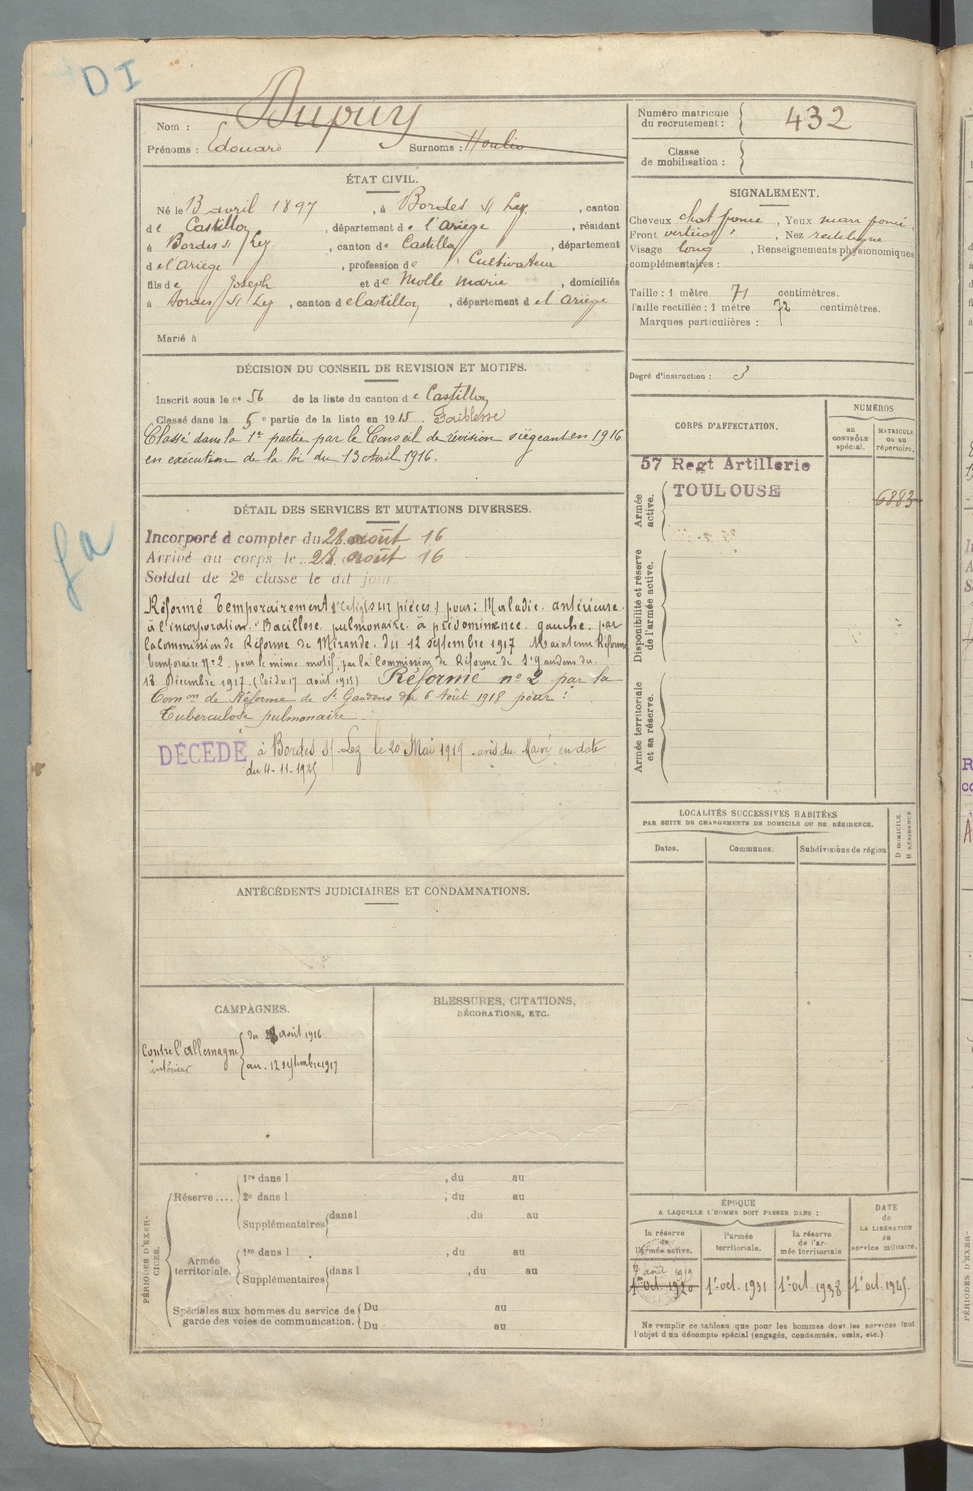 DI
Nom : Dupuy
Prénoms : Edouard Surnoms : Houlio
Numéro matricule du recrutement : 432
Classe de mobilisation :
ÉTAT CIVIL.
Né le 13 avril 1897, à Bordes s/ Lez, canton
de Castillon, département de l'Ariège, résidant
à Bordes s/ Lez, canton de Castillon, département
de l'Ariège, profession de Cultivateur
fils de Joseph et de Molle marie, domiciliés
à Bordes s/ Lez, canton de Castillon, département de l'Ariège
Marié à
SIGNALEMENT.
Cheveux chat foncé, Yeux marr foncé.
Front vertical, Nez rectiligne
Visage long, Renseignements physionomiques
complémentaires :
Taille : 1 mètre 71 centimètres.
Taille rectifiée : 1 mètre 72 centimètres.
Marques particulières :
Degré d'instruction : 3
DÉCISION DU CONSEIL DE REVISION ET MOTIFS.
Inscrit sous le n° 56 de la liste du canton de Castillon
Classé dans la 5e partie de la liste en 1915. Faiblesse
Classé dans la 1re partie par le Conseil de révision siégeant en 1916
en exécution de la loi du 13 Avril 1916.
CORPS D'AFFECTATION.
NUMÉROS
AU CONTRÔLE spécial.
MATRICULE OU AU répertoire.
57 Regt Artillerie
TOULOUSE
6883
Armée active.
Disponibilité et réserve de l'armée active.
Armée territoriale et sa réserve.
DÉTAIL DES SERVICES ET MUTATIONS DIVERSES.
Incorporé à compter du 28 août 16
Arrivé au corps le 28 août 16
Soldat de 2e classe le dit jour.
Réformé Temporairement (sur pièces) pour: Maladie antérieure
à l'incorporation. Bacillose pulmonaire à prédominence gauche, par
la Commission de Réforme de Mirande du 12 septembre 1917 Maintenu Réformé
temporaire n° 2 pour le même motif, par la Commission de Réforme de St Gaudens du
13 Décembre 1917. (Loi du 17 août 1915) Réformé n° 2 par la
Comon de Réforme de St Gaudens du 6 Août 1918 pour :
Tuberculose pulmonaire.
DÉCÉDÉ à Bordes s/ Lez le 20 Mai 1919 avis du Maire en date
du 4-11-1925
fa
LOCALITÉS SUCCESSIVES HABITÉES
PAR SUITE DE CHANGEMENTS DE DOMICILE OU DE RÉSIDENCE.
Dates.
Communes.
Subdivisions de région
D DOMICILE.
R RÉSIDENCE
ANTÉCÉDENTS JUDICIAIRES ET CONDAMNATIONS.
CAMPAGNES.
Contre l'Allemagne
intérieur
du 28 août 1916
au 12 septembre 1917
BLESSURES, CITATIONS,
DÉCORATIONS, ETC.
PÉRIODES D'EXERCICES.
Réserve....
1re dans l , du au
2e dans l , du au
Supplémentaires dans l , du au
Armée territoriale.
1re dans l , du au
Supplémentaires dans l , du au
Spéciales aux hommes du service de garde des voies de communication.
Du au
Du au
ÉPOQUE
A LAQUELLE L'HOMME DOIT PASSER DANS :
la réserve de l'armée active.
l'armée territoriale.
la réserve de l'armée territoriale
DATE de LA LIBÉRATION du service militaire.
7 août 1919
1er oct. 1920
1er oct. 1931
1er oct. 1938
1er oct. 1945.
Ne remplir ce tableau que pour les hommes dont les services font
l'objet d'un décompte spécial (engagés, condamnés, omis, etc.)
PÉRIODES D'EXER-